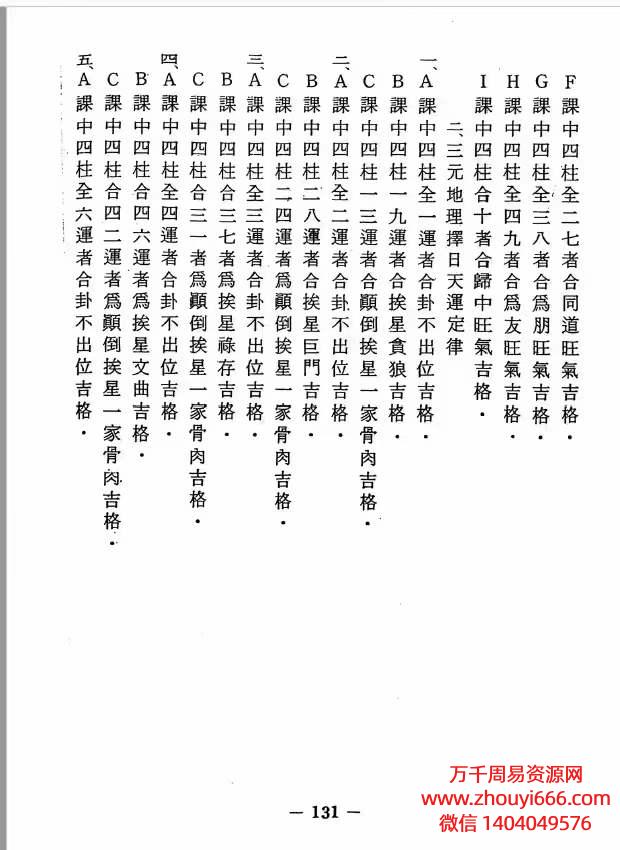 F課中四柱全二七者合同道旺氣吉格．
G課中四柱全三八者合爲朋旺氣吉格．
H課中四柱全四九者合爲友旺氣吉格．
I課中四柱合十者合歸中旺氣吉格．
二、三元地理擇日天運定律
一、A課中四柱全一運者合卦不出位吉格．
B課中四柱一九運者合挨星貪狼吉格．
C課中四柱一三運者合顚倒挨星一家骨肉吉格．
二、A課中四柱全二運者合卦不出位吉格．
B課中四柱二八運者合挨星巨門吉格．
C課中四柱二四運者爲顚倒挨星一家骨肉吉格．
三、A課中四柱全三運者合卦不出位吉格．
B課中四柱合三七者爲挨星祿存吉格．
C課中四柱合三一者爲顚倒挨星一家骨肉吉格．
四、A課中四柱全四運者合卦不出位吉格．
B課中四柱合四六運者爲挨星文曲吉格．
C課中四柱合四二運者爲顚倒挨星一家骨肉吉格．
五、A課中四柱全六運者合卦不出位吉格．
— 131 —
万千周易资源网
www.zhouyi666.com
微信 1404049576